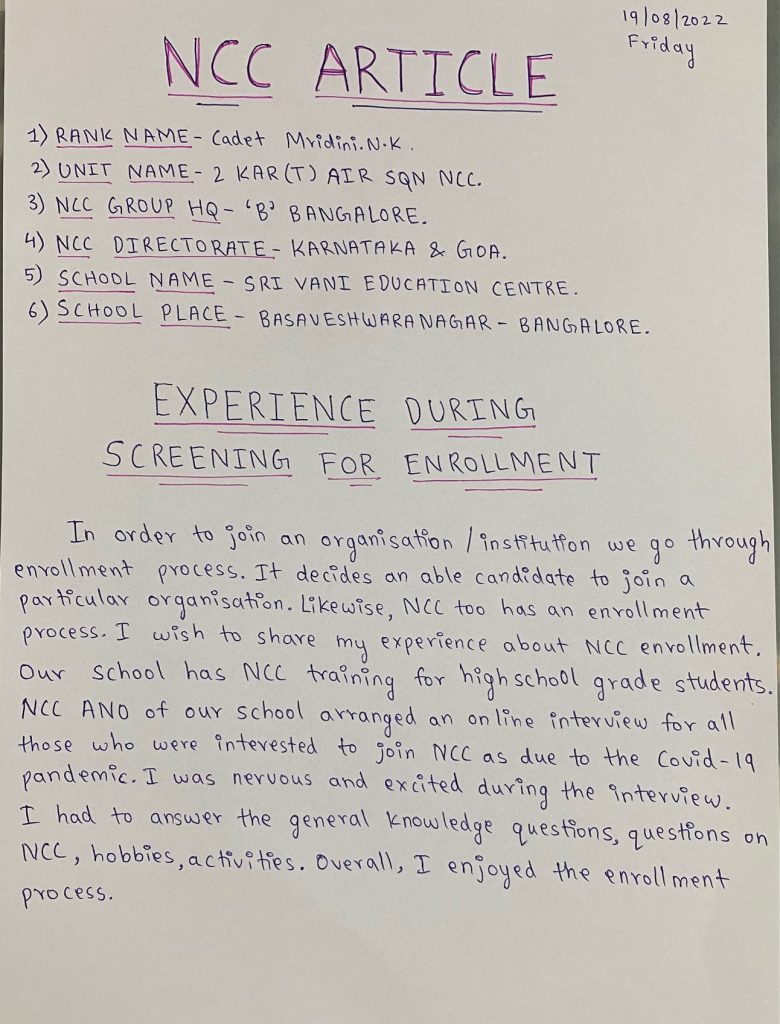 19/08/2022
Friday
NCC ARTICLE
1) RANK NAME - Cadet Mridini.N.K.
2) UNIT NAME - 2 KAR (T) AIR SQN NCC.
3) NCC GROUP HQ - 'B' BANGALORE.
4) NCC DIRECTORATE - KARNATAKA & GOA.
5) SCHOOL NAME - SRI VANI EDUCATION CENTRE.
6) SCHOOL PLACE - BASAVESHWARANAGAR - BANGALORE.
EXPERIENCE DURING
SCREENING FOR ENROLLMENT
In order to join an organisation / institution we go through
enrollment process. It decides an able candidate to join a
particular organisation. Likewise, NCC too has an enrollment
process. I wish to share my experience about NCC enrollment.
Our school has NCC training for high school grade students.
NCC ANO of our school arranged an online interview for all
those who were interested to join NCC as due to the Covid-19
pandemic. I was nervous and excited during the interview.
I had to answer the general knowledge questions, questions on
NCC, hobbies, activities. Overall, I enjoyed the enrollment
process.